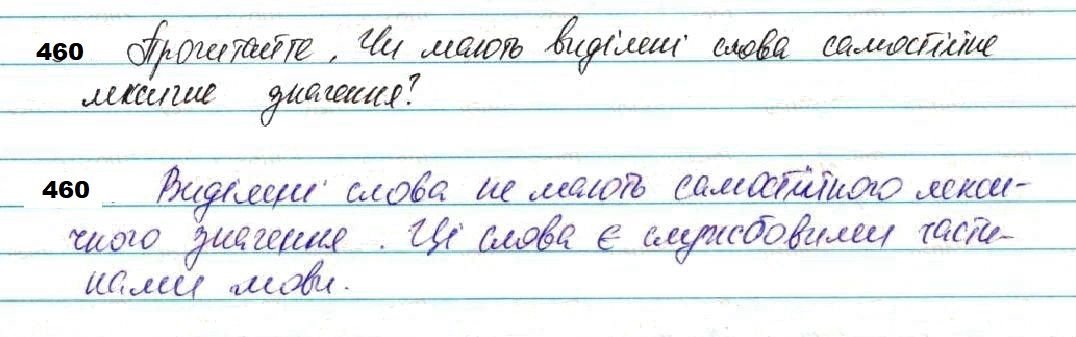 460 Прочитайте. Чи мають виділені слова самостійне
лексичне значення?
460 Виділені слова не мають самостійного лекси-
чного значення. Ці слова є службовими части-
нами мови.